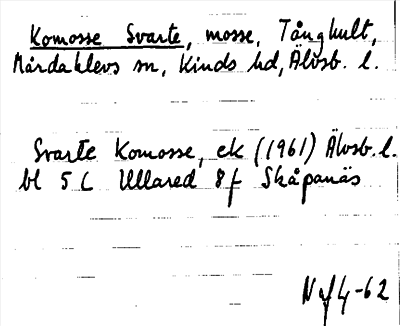 Komosse Svarte, mosse, Tånghult,
Mårdaklevs sn, Kinds hd, Älvsb. l.
Svarte Komosse, ek (1961) Älvsb. l.
bl 5 C Ullared 8 f Skåpanäs
N of 4-62